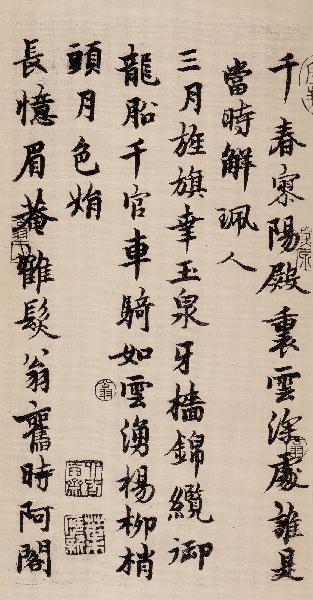 千春寥陽殿裏雲深處誰是
當時解珮人
三月旌旗幸玉泉牙檣錦纜御
龍船千官車騎如雲湧楊柳梢
頭月色娟
長憶眉菴髮翁舊時阿閣